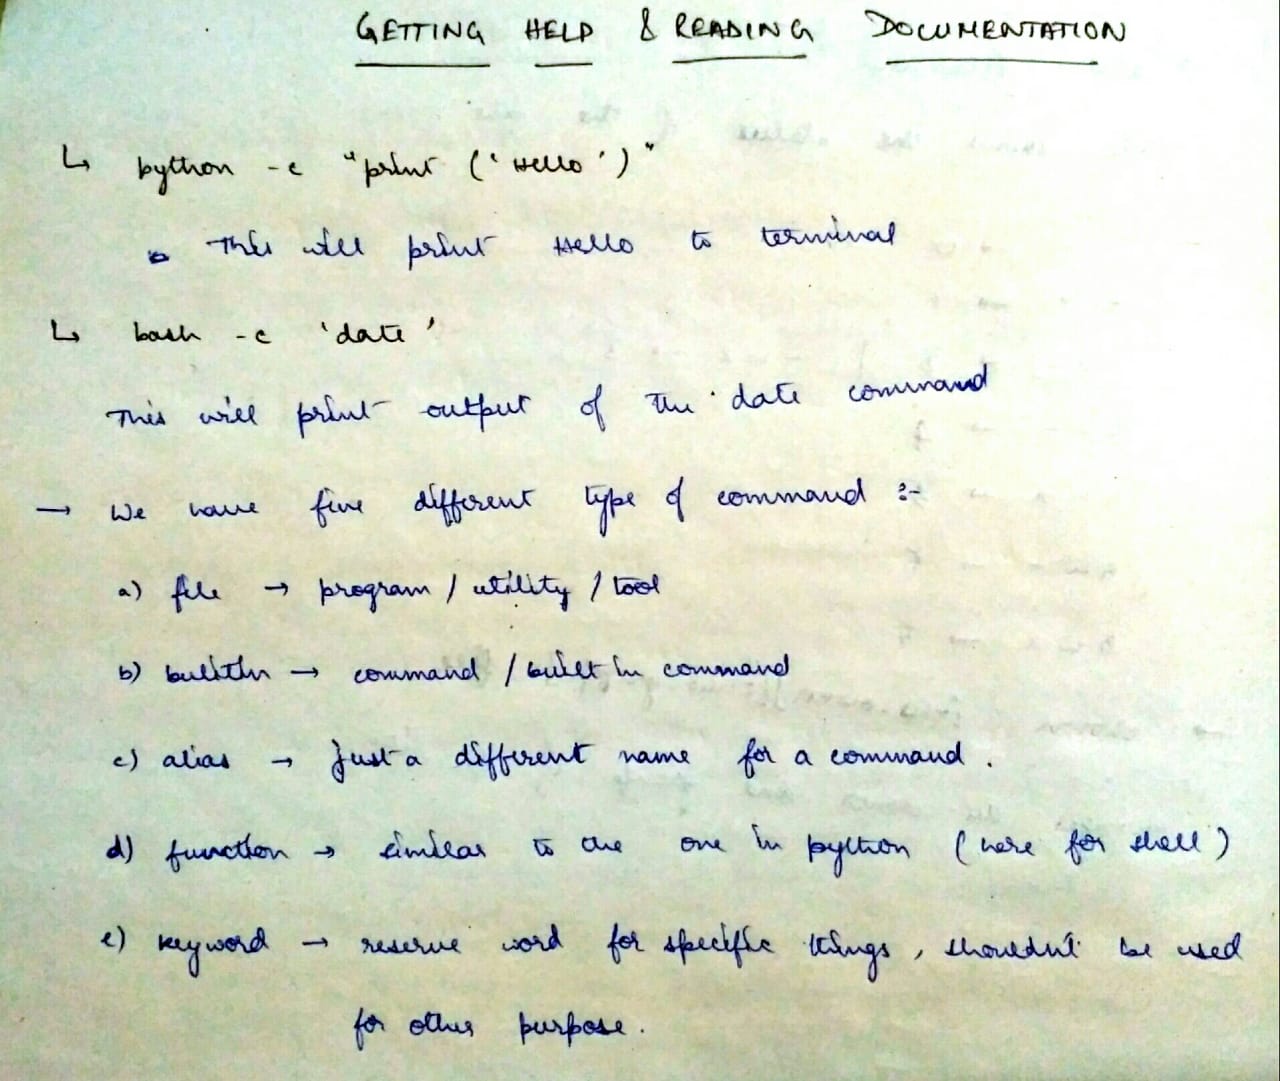 GETTING HELP & READING DOCUMENTATION
↳ python -c "print ('Hello')"
This will print Hello to terminal
↳ bash -c 'date'
This will print output of the date command
→ We have five different type of command :-
a) file → program / utility / tool
b) builtin → command / built in command
c) alias → Just a different name for a command .
d) function → similar to the one in python (here for shell)
e) keyword → reserve word for specific things, shouldn't be used
for other purpose.